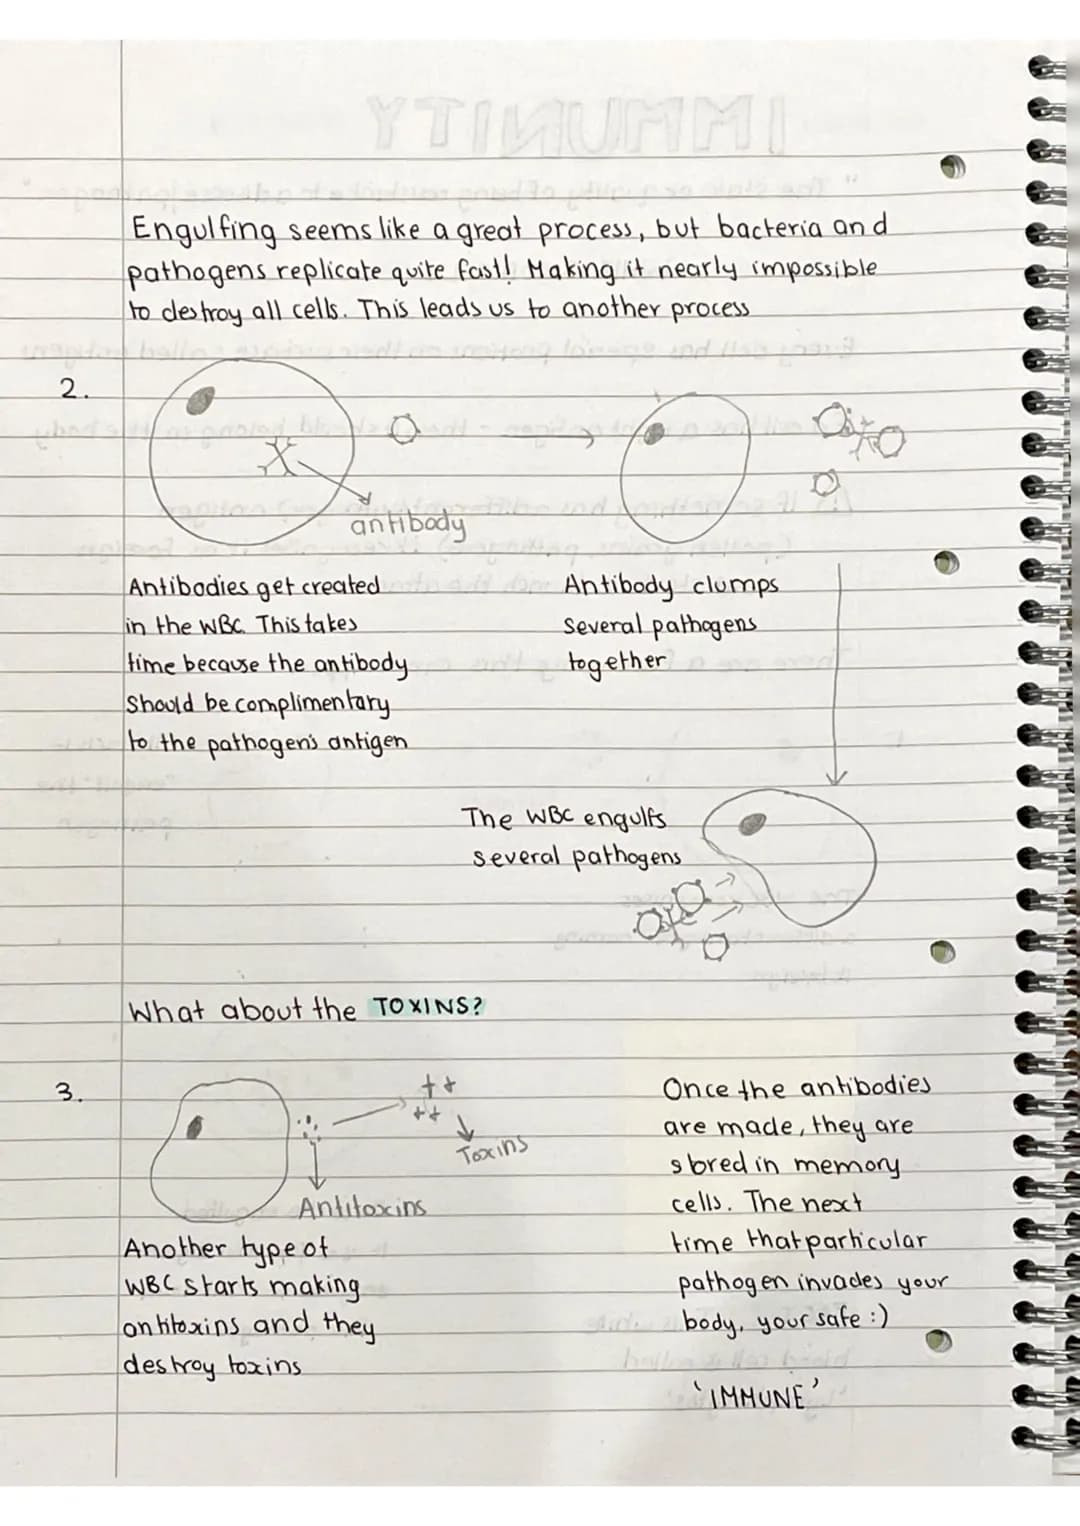 Engulfing seems like a great process, but bacteria and
pathogens replicate quite fast! Making it nearly impossible
to destroy all cells. This leads us to another process
2.
antibody
Antibodies get created
in the WBC. This takes
time because the antibody
Should be complimentary
to the pathogen's antigen
Antibody clumps
Several pathogens
together
The WBC engulfs
several pathogens
What about the TOXINS?
3.
Toxins
Antitoxins
Another type of
WBC starts making
antitoxins and they
destroy toxins
Once the antibodies
are made, they are
stored in memory
cells. The next
time that particular
pathogen invades your
body, your safe :)
'IMMUNE'